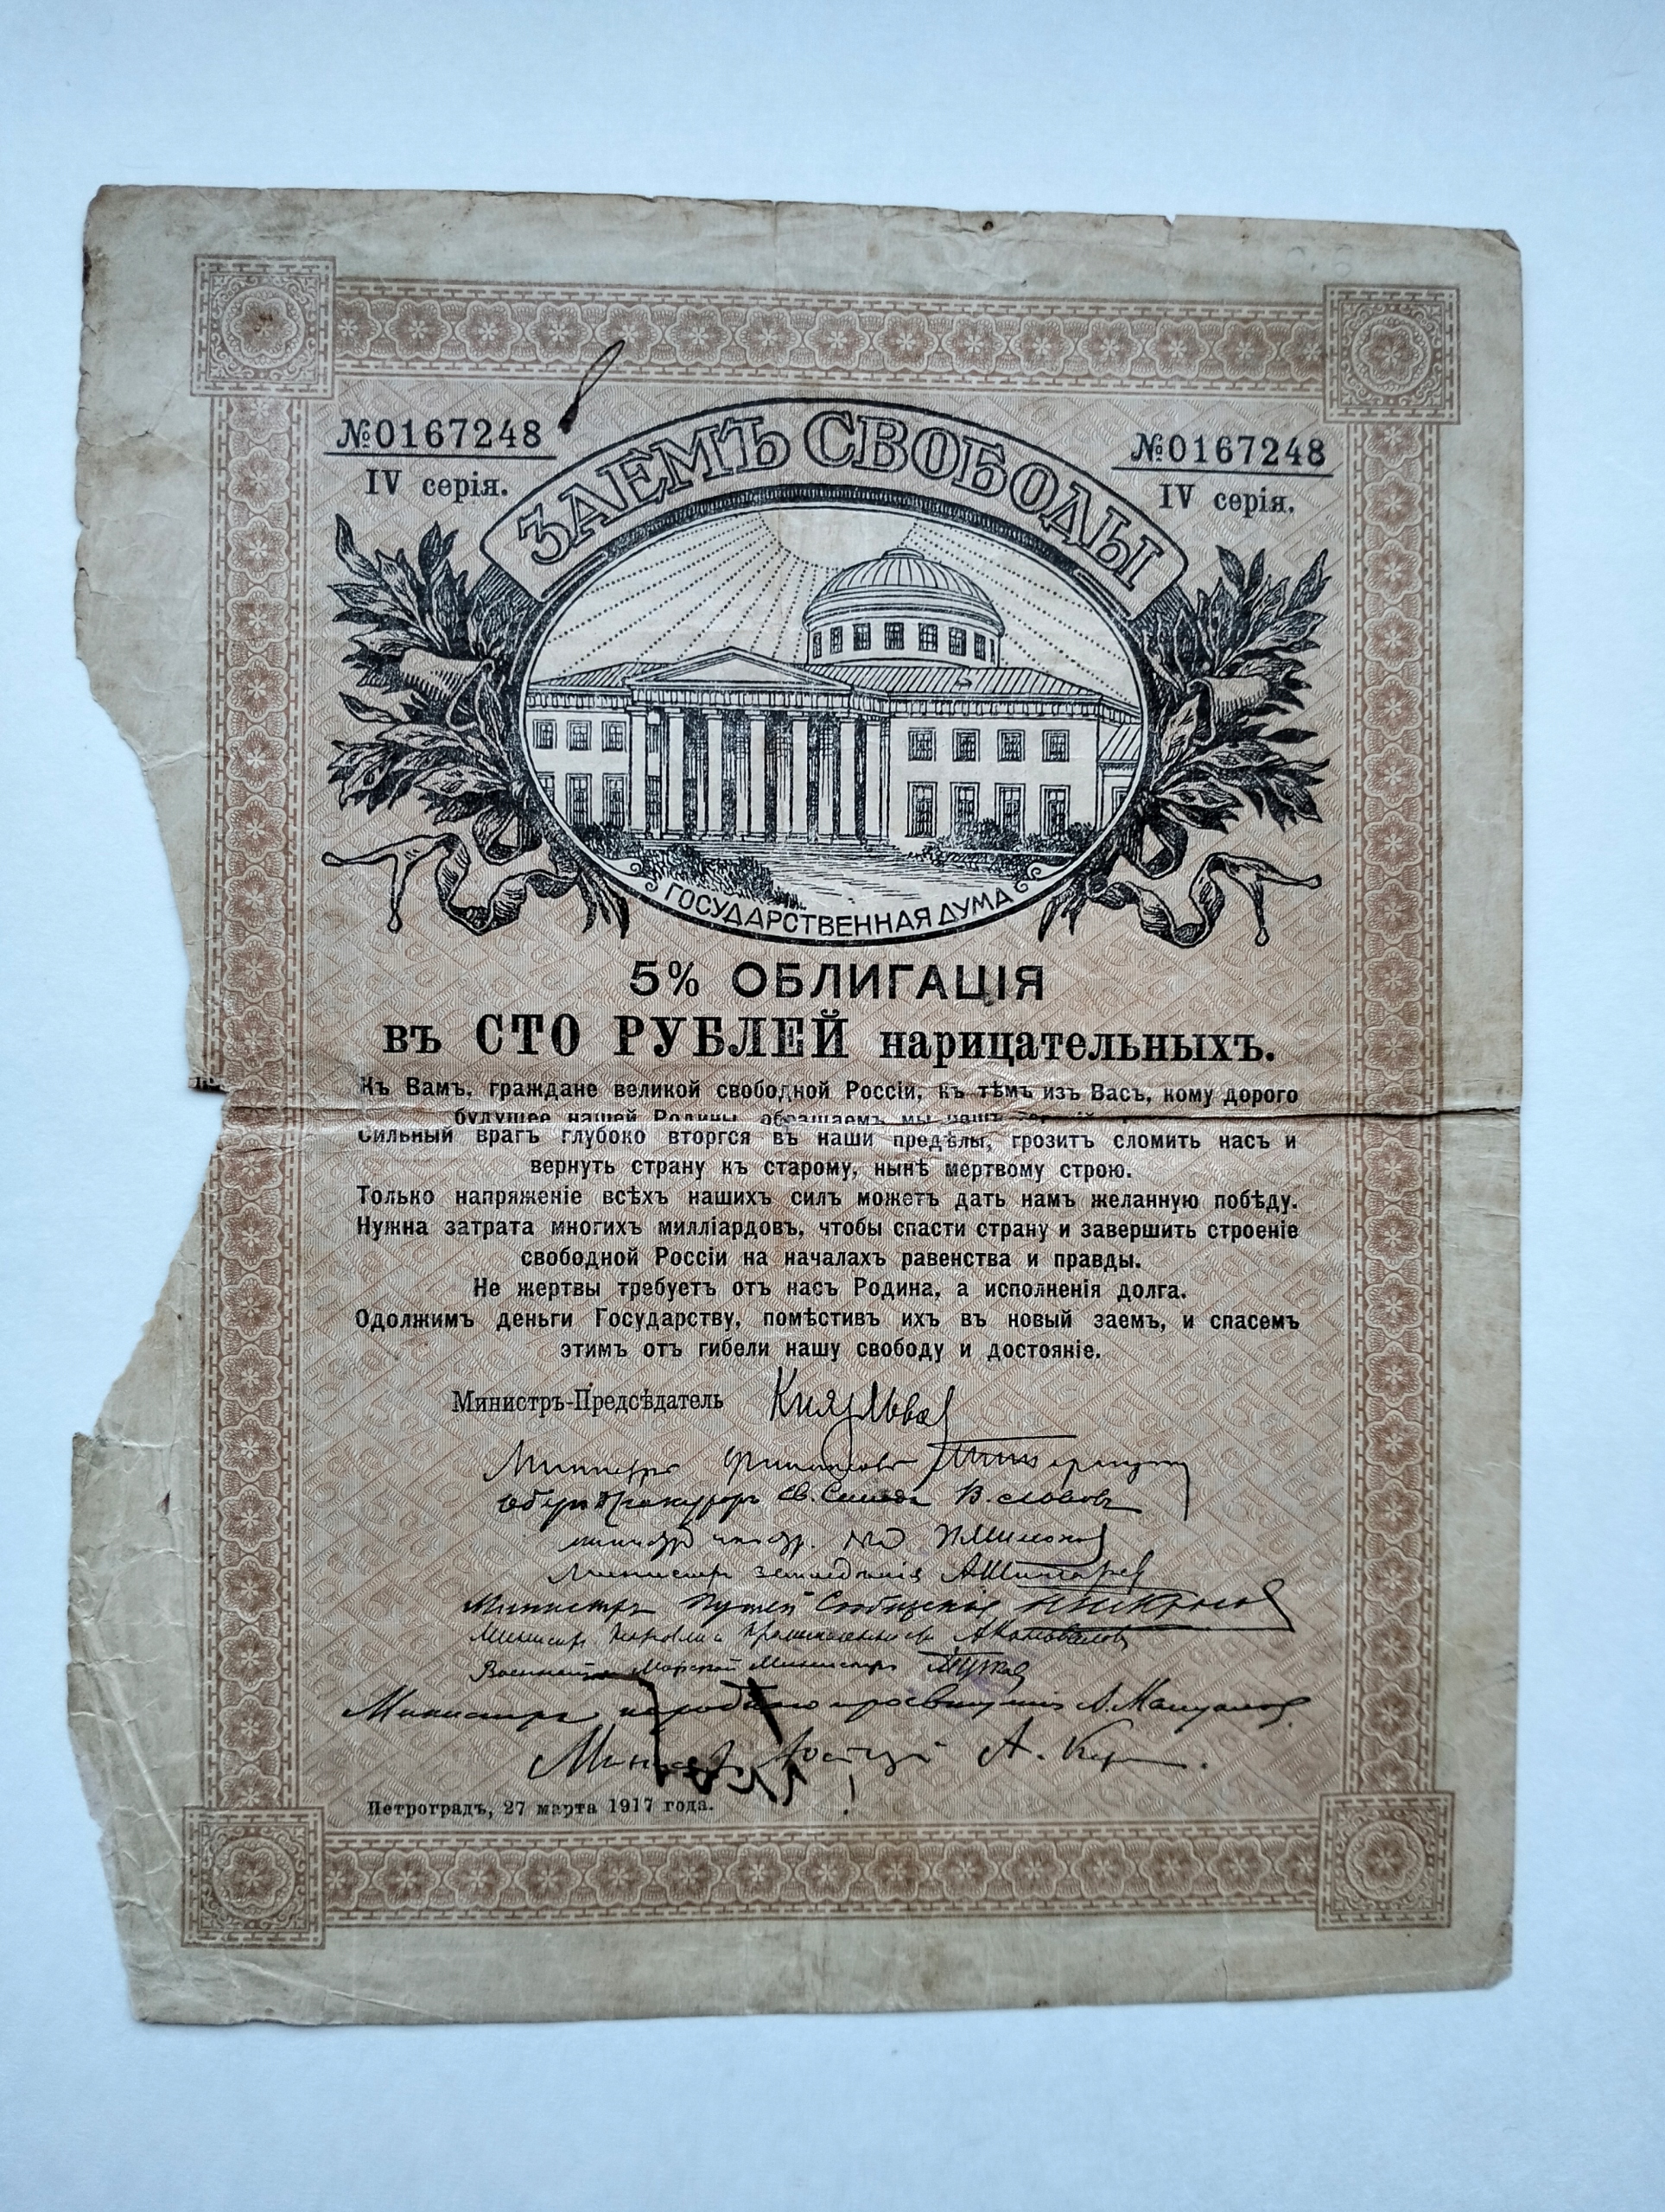 №0167248
IV серія.
№0167248
IV серія.
ЗАЕМЪ СВОБОДЫ
ГОСУДАРСТВЕННАЯ ДУМА
5% ОБЛИГАЦІЯ
въ СТО РУБЛЕЙ нарицательныхъ.
Къ Вамъ, граждане великой свободной Россіи, къ тѣмъ изъ Васъ, кому дорого
будущее нашей Родины, обращаемъ мы нашъ
Сильный врагъ глубоко вторгся въ наши предѣлы, грозитъ сломить насъ и
вернуть страну къ старому, нынѣ мертвому строю.
Только напряженіе всѣхъ нашихъ силъ можетъ дать намъ желанную побѣду.
Нужна затрата многихъ милліардовъ, чтобы спасти страну и завершить строеніе
свободной Россіи на началахъ равенства и правды.
Не жертвы требуетъ отъ насъ Родина, а исполненія долга.
Одолжимъ деньги Государству, помѣстивъ ихъ въ новый заемъ, и спасемъ
этимъ отъ гибели нашу свободу и достояніе.
Министръ-Предсѣдатель Князь Львов
Министръ Финансовъ
Оберъ Прокуроръ Св. Синода В. Львовъ
П Милюков
Министръ земледѣлія А Шингарев
Министръ Путей Сообщенія Н Некрасов
Министръ Торговли и Промышленности А Коновалов
Военный и Морской Министръ А Гучков
Министръ народнаго просвѣщенія А. Мануйлов.
Министр Юстиціи А. Кер
Петроградъ, 27 марта 1917 года.